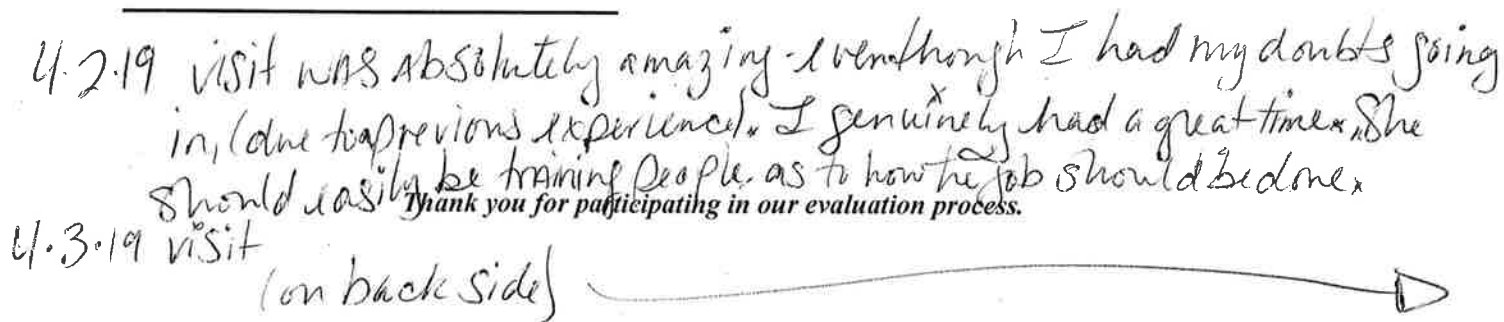 4.2.19 visit was absolutely amazing - eventhough I had my doubts going
in, (due to a previous experience). I genuinely had a great time. She
should easily be training people as to how the job should be done.
Thank you for participating in our evaluation process.
4.3.19 visit
(on back side)